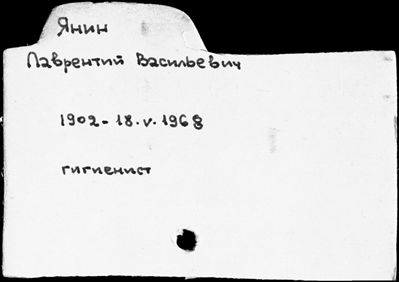 Янин
Лаврентий Васильевич
1902-18.V.1968
гигиенист